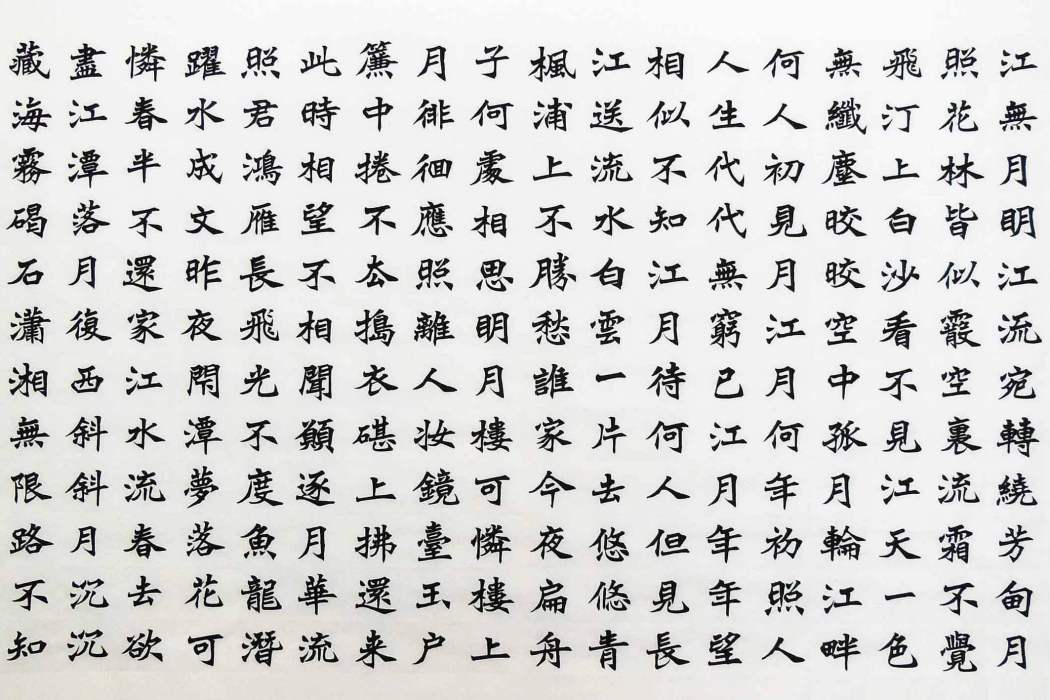 江無月明江流宛轉繞芳甸月
照花林皆似霰空裏流霜不覺
飛汀上白沙看不見江天一色
無纖塵晈晈空中孤月輪江畔
何人初見月江月何年初照人
人生代代無窮已江月年年望
相似不知江月待何人但見長
江送流水白雲一片去悠悠青
楓浦上不勝愁誰家今夜扁舟
子何處相思明月樓可憐樓上
月徘徊應照離人妆鏡臺玉户
簾中捲不去搗衣碪上拂還来
此時相望不相聞願逐月華流
照君鴻雁長飛光不度魚龍潛
躍水成文昨夜閒潭夢落花可
憐春半不還家江水流春去欲
盡江潭落月復西斜斜月沉沉
藏海霧碣石瀟湘無限路不知